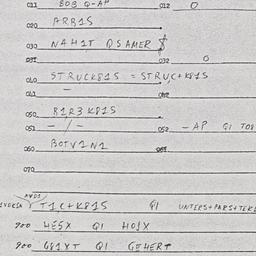 011 BOB Q-AP 012 0
020 ARB1S
030 NAH1T QSAMER $
031 032 0
040 STRUCK81S = STRUC+K81S
041 — 042
050 B1R3K81S
051 - / - 052 -AP Q1 TOB
060 BOTV1N1 061
070
T1C+K81S Q1 UNTERS+PARS+TEKS
900 HE5X Q1 HO1X
900 G81XT Q1 GEHERT